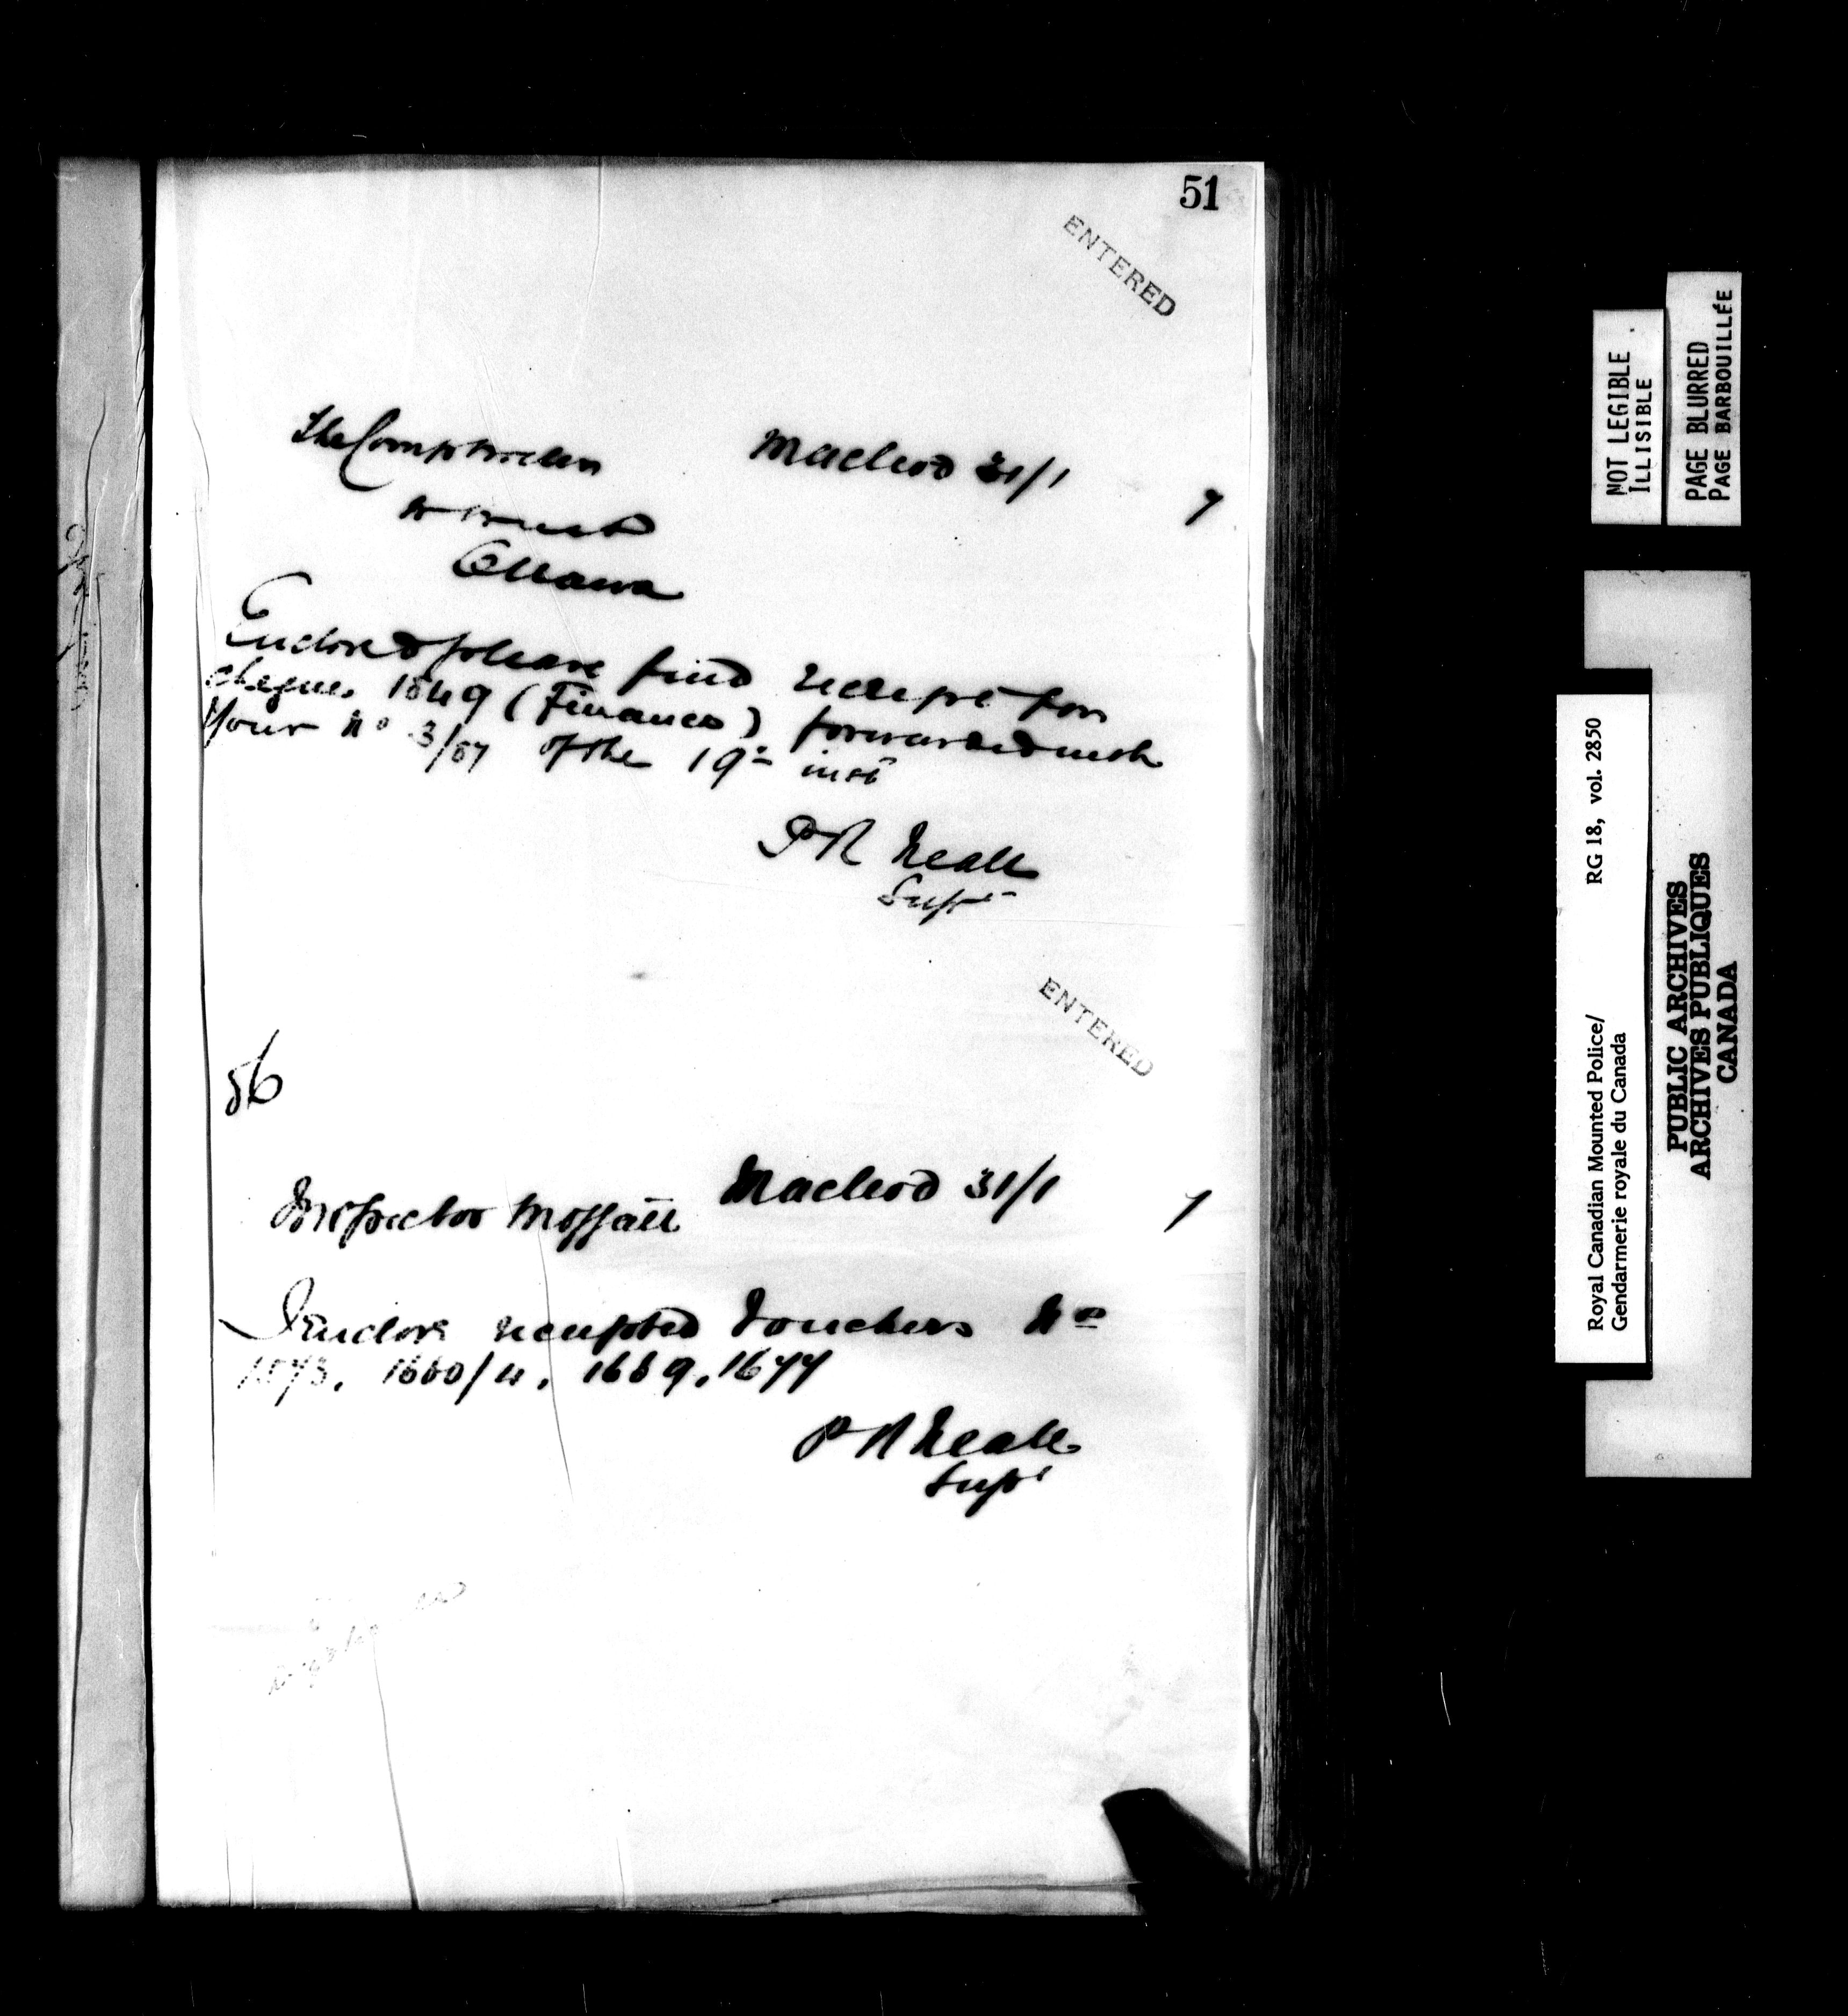 51
ENTERED
The Comptroller Macleod 31/1 7
Ottawa
Enclosed please find receipt for
cheque 1549 (Finance) forwarded with
your No 3/87 of the 19th inst
P R Neale
Supt
ENTERED
56
Inspector Moffatt Macleod 31/1 7
I enclose receipted vouchers No
1660/4, 1669, 1677
P R Neale
Supt
NOT LEGIBLE
ILLISIBLE
PAGE BLURRED
PAGE BARBOUILLÉE
Royal Canadian Mounted Police/ RG 18, vol. 2850
Gendarmerie royale du Canada
PUBLIC ARCHIVES
ARCHIVES PUBLIQUES
CANADA